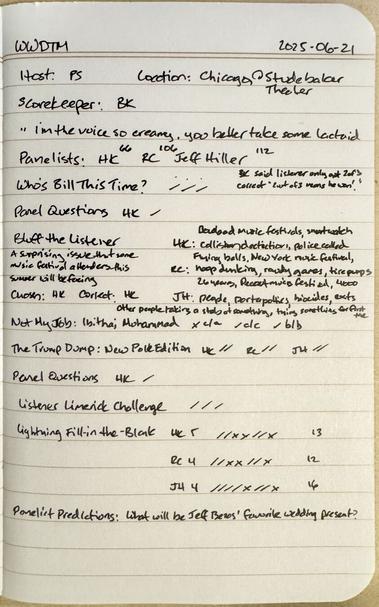 WWDTM 2025-06-21
Host: PS Location: Chicago @ Studebaker Theater
Scorekeeper: BK
"i'm the voice so creamy, you better take some lactaid
Panelists: HK 66 RC 106 Jeff Hiller 112
Who's Bill This Time? / / / BK said listener only got 2 of 3 correct "2 out of 3 means he won!"
Panel Questions HK /
Bluff the Listener Deadood music festivals, smartwatch
A surprising issue that some music festival attendees this summer will be facing
HK: collision detection, police called
Flying balls, New York music festival,
RC: hoop dunking, rowdy games, tire pumps
26 years, festied, 4000
Chosen: HK Correct: HK JH: people, portapotties, biocides, exits
Other people taking a stab at something, trying something for first time
Not My Job: Ibtihaj Muhammad x c/a / c/c / b/b
The Trump Dump: New Pole Edition HK // RC // JH //
Panel Questions HK /
Listener Limerick Challenge / / /
Lightning Fill-in-the-Blank HK 5 //xx//x 13
RC 4 //xx//x 12
JH 4 ////x// 16
Panelist Predictions: What will be Jeff Bezos' favorite wedding present?